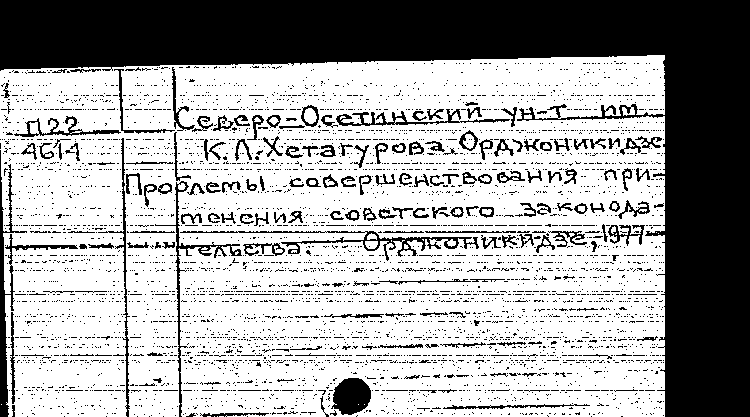 П22 Северо-Осетинский ун-т им.
4614 К.Л.Хетагурова. Орджоникидзе.
Проблемы совершенствования при-
менения советского законода-
тельства. Орджоникидзе, 1977